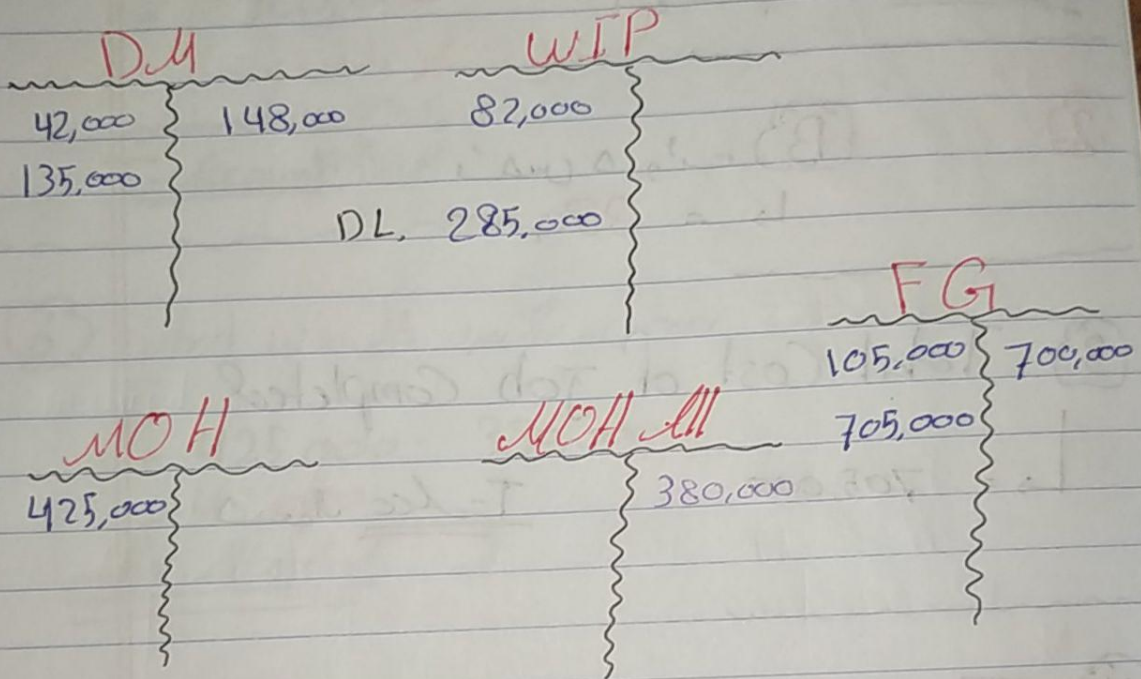 DM
42,000 148,000
135,000
WIP
82,000
DL. 285,000
FG
105,000 700,000
705,000
MOH
425,000
MOH All
380,000